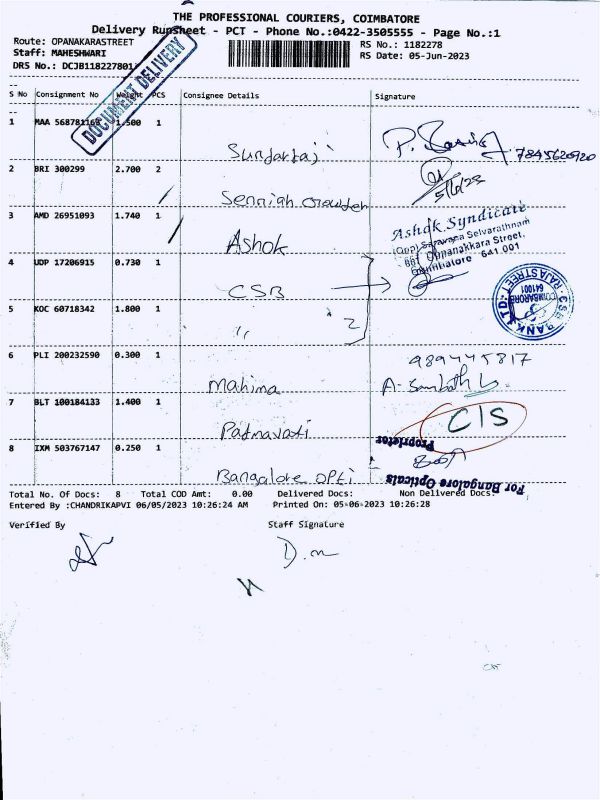 THE PROFESSIONAL COURIERS, COIMBATORE
Delivery Runsheet - PCT - Phone No.:0422-3505555 - Page No.:1
Route: OPANAKARASTREET RS No.: 1182278
Staff: MAHESHWARI RS Date: 05-Jun-2023
DRS No.: DCJB1182278011
DOCUMENT DELIVERY
S No Consignment No Weight PCS Consignee Details Signature
1 MAA 568781169 1.500 1
7845620920
2 BRI 300299 2.700 2
5/6/23
Sennian
3 AMD 26951093 1.740 1
Ashok Syndicate
Saravana Selvarathnam
Oppanakkara Street,
Coimbatore 641 001
Ashok
4 UDP 17206915 0.730 1
CSB
CSB BANK LTD
RAJASTREET
COIMBATORE
641001
5 KOC 60718342 1.800 1
" 2
6 PLI 200232590 0.300 1
9894445817
Mahima
7 BLT 100184133 1.400 1
CIS
Padmavati
Proprietor
8 IXM 503767147 0.250 1
Bangalore Opti
For Bangalore Opticals
Total No. Of Docs: 8 Total COD Amt: 0.00 Delivered Docs: Non Delivered Docs:
Entered By :CHANDRIKAPVI 06/05/2023 10:26:24 AM Printed On: 05-06-2023 10:26:28
Verified By Staff Signature
D.m